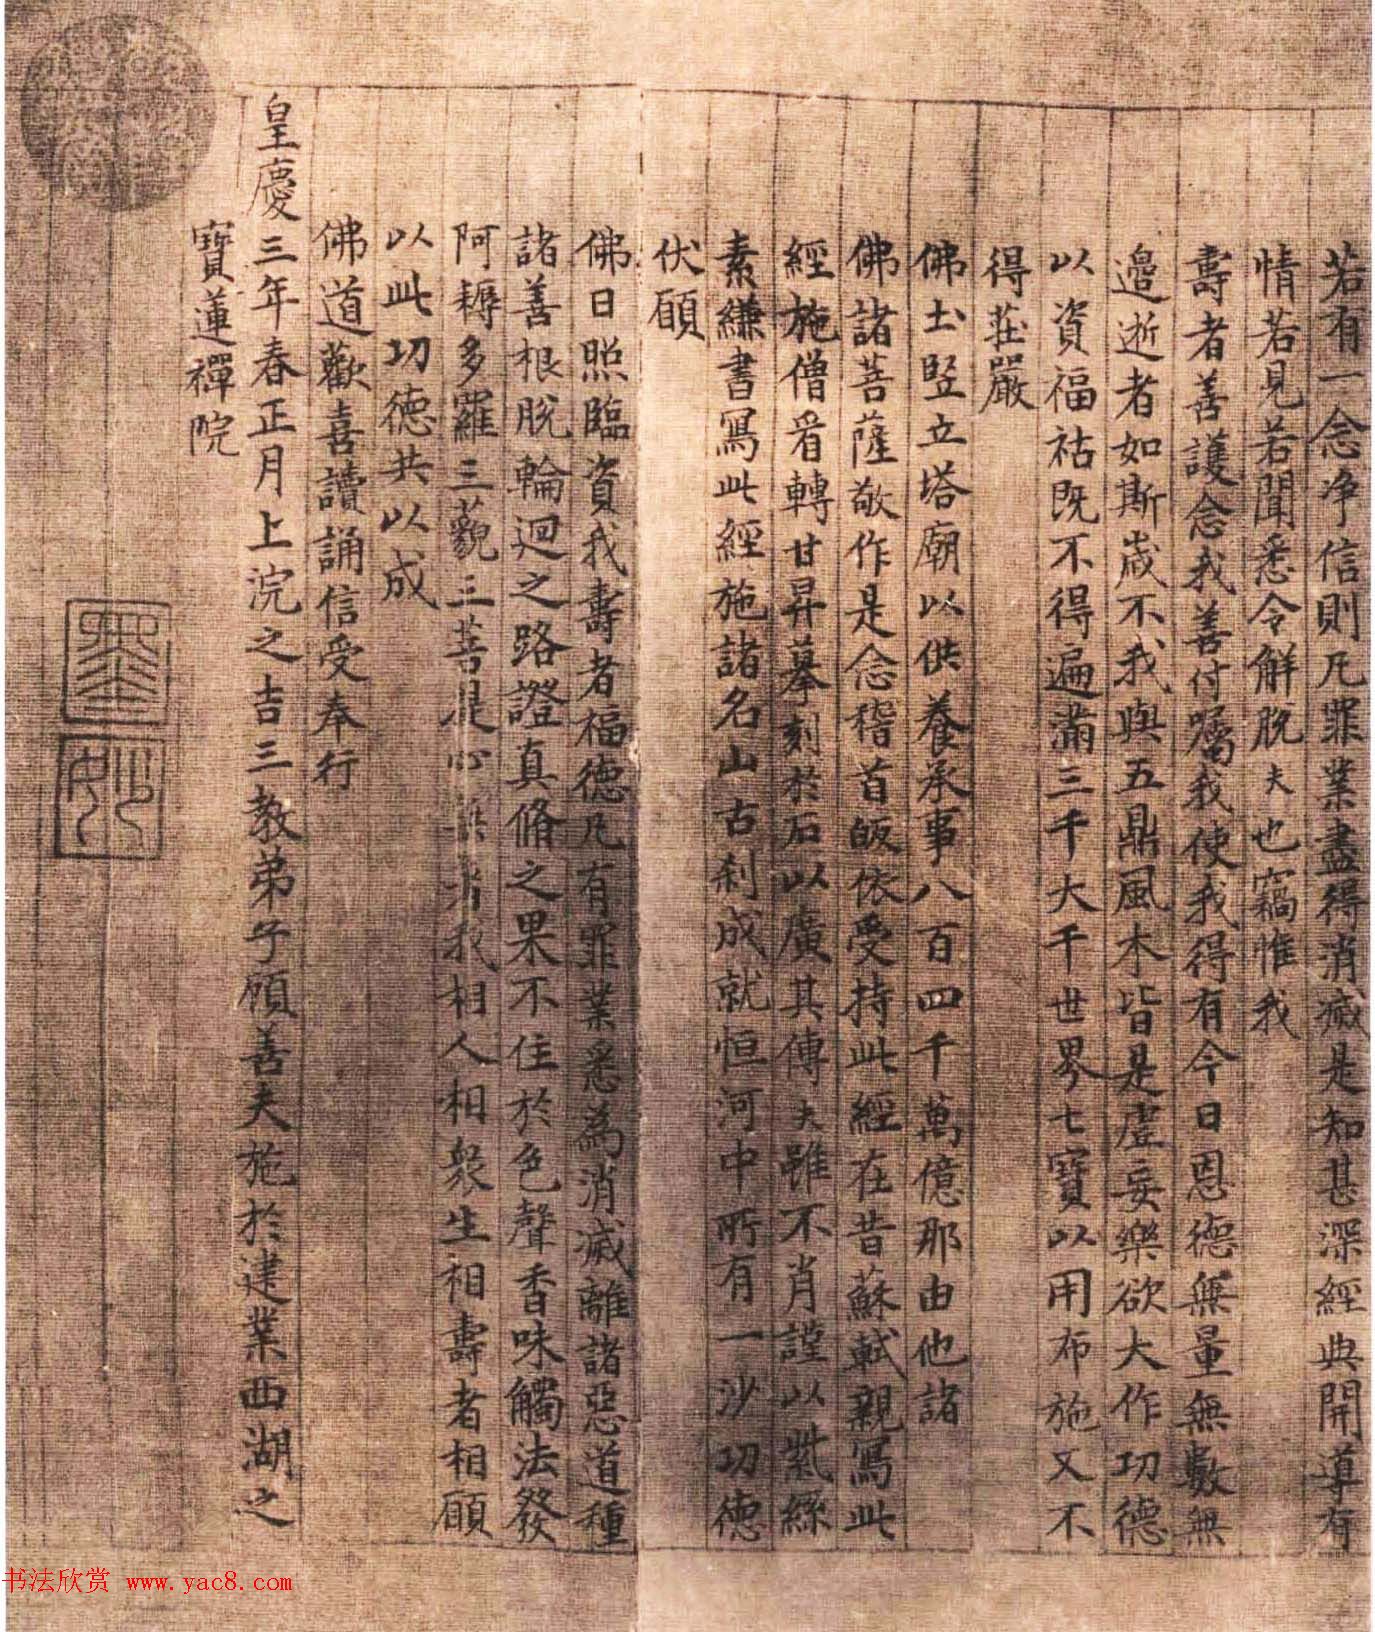 若有一念净信則凡罪業盡得消滅是知甚深經典開導有
情若見若聞悉令解脫夫也竊惟我
壽者善護念我善付囑我使我得有今日恩德無量無數無
邊逝者如斯歲不我與五鼎風木皆是虛妄樂欲大作功德
以資福祜既不得遍滿三千大千世界七寶以用布施又不
得莊嚴
佛土竪立塔廟以供養承事八百四千萬億那由他諸
佛諸菩薩敬作是念稽首皈依受持此經在昔蘇軾親寫此
經施僧看轉甘昇摹刻於石以廣其傳夫雖不肖謹以紫絲
素縑書寫此經施諸名山古刹成就恒河中所有一沙功德
伏願
佛日照臨資我壽者福德凡有罪業悉為消滅離諸惡道種
諸善根脫輪迴之路證真脩之果不住於色聲香味觸法發
阿耨多羅三藐三菩提心無者我相人相衆生相壽者相願
以此功德共以成
佛道歡喜讀誦信受奉行
皇慶三年春正月上浣之吉三教弟子顧善夫施於建業西湖之
寶蓮禪院
墨
妙
书法欣赏 www.yac8.com